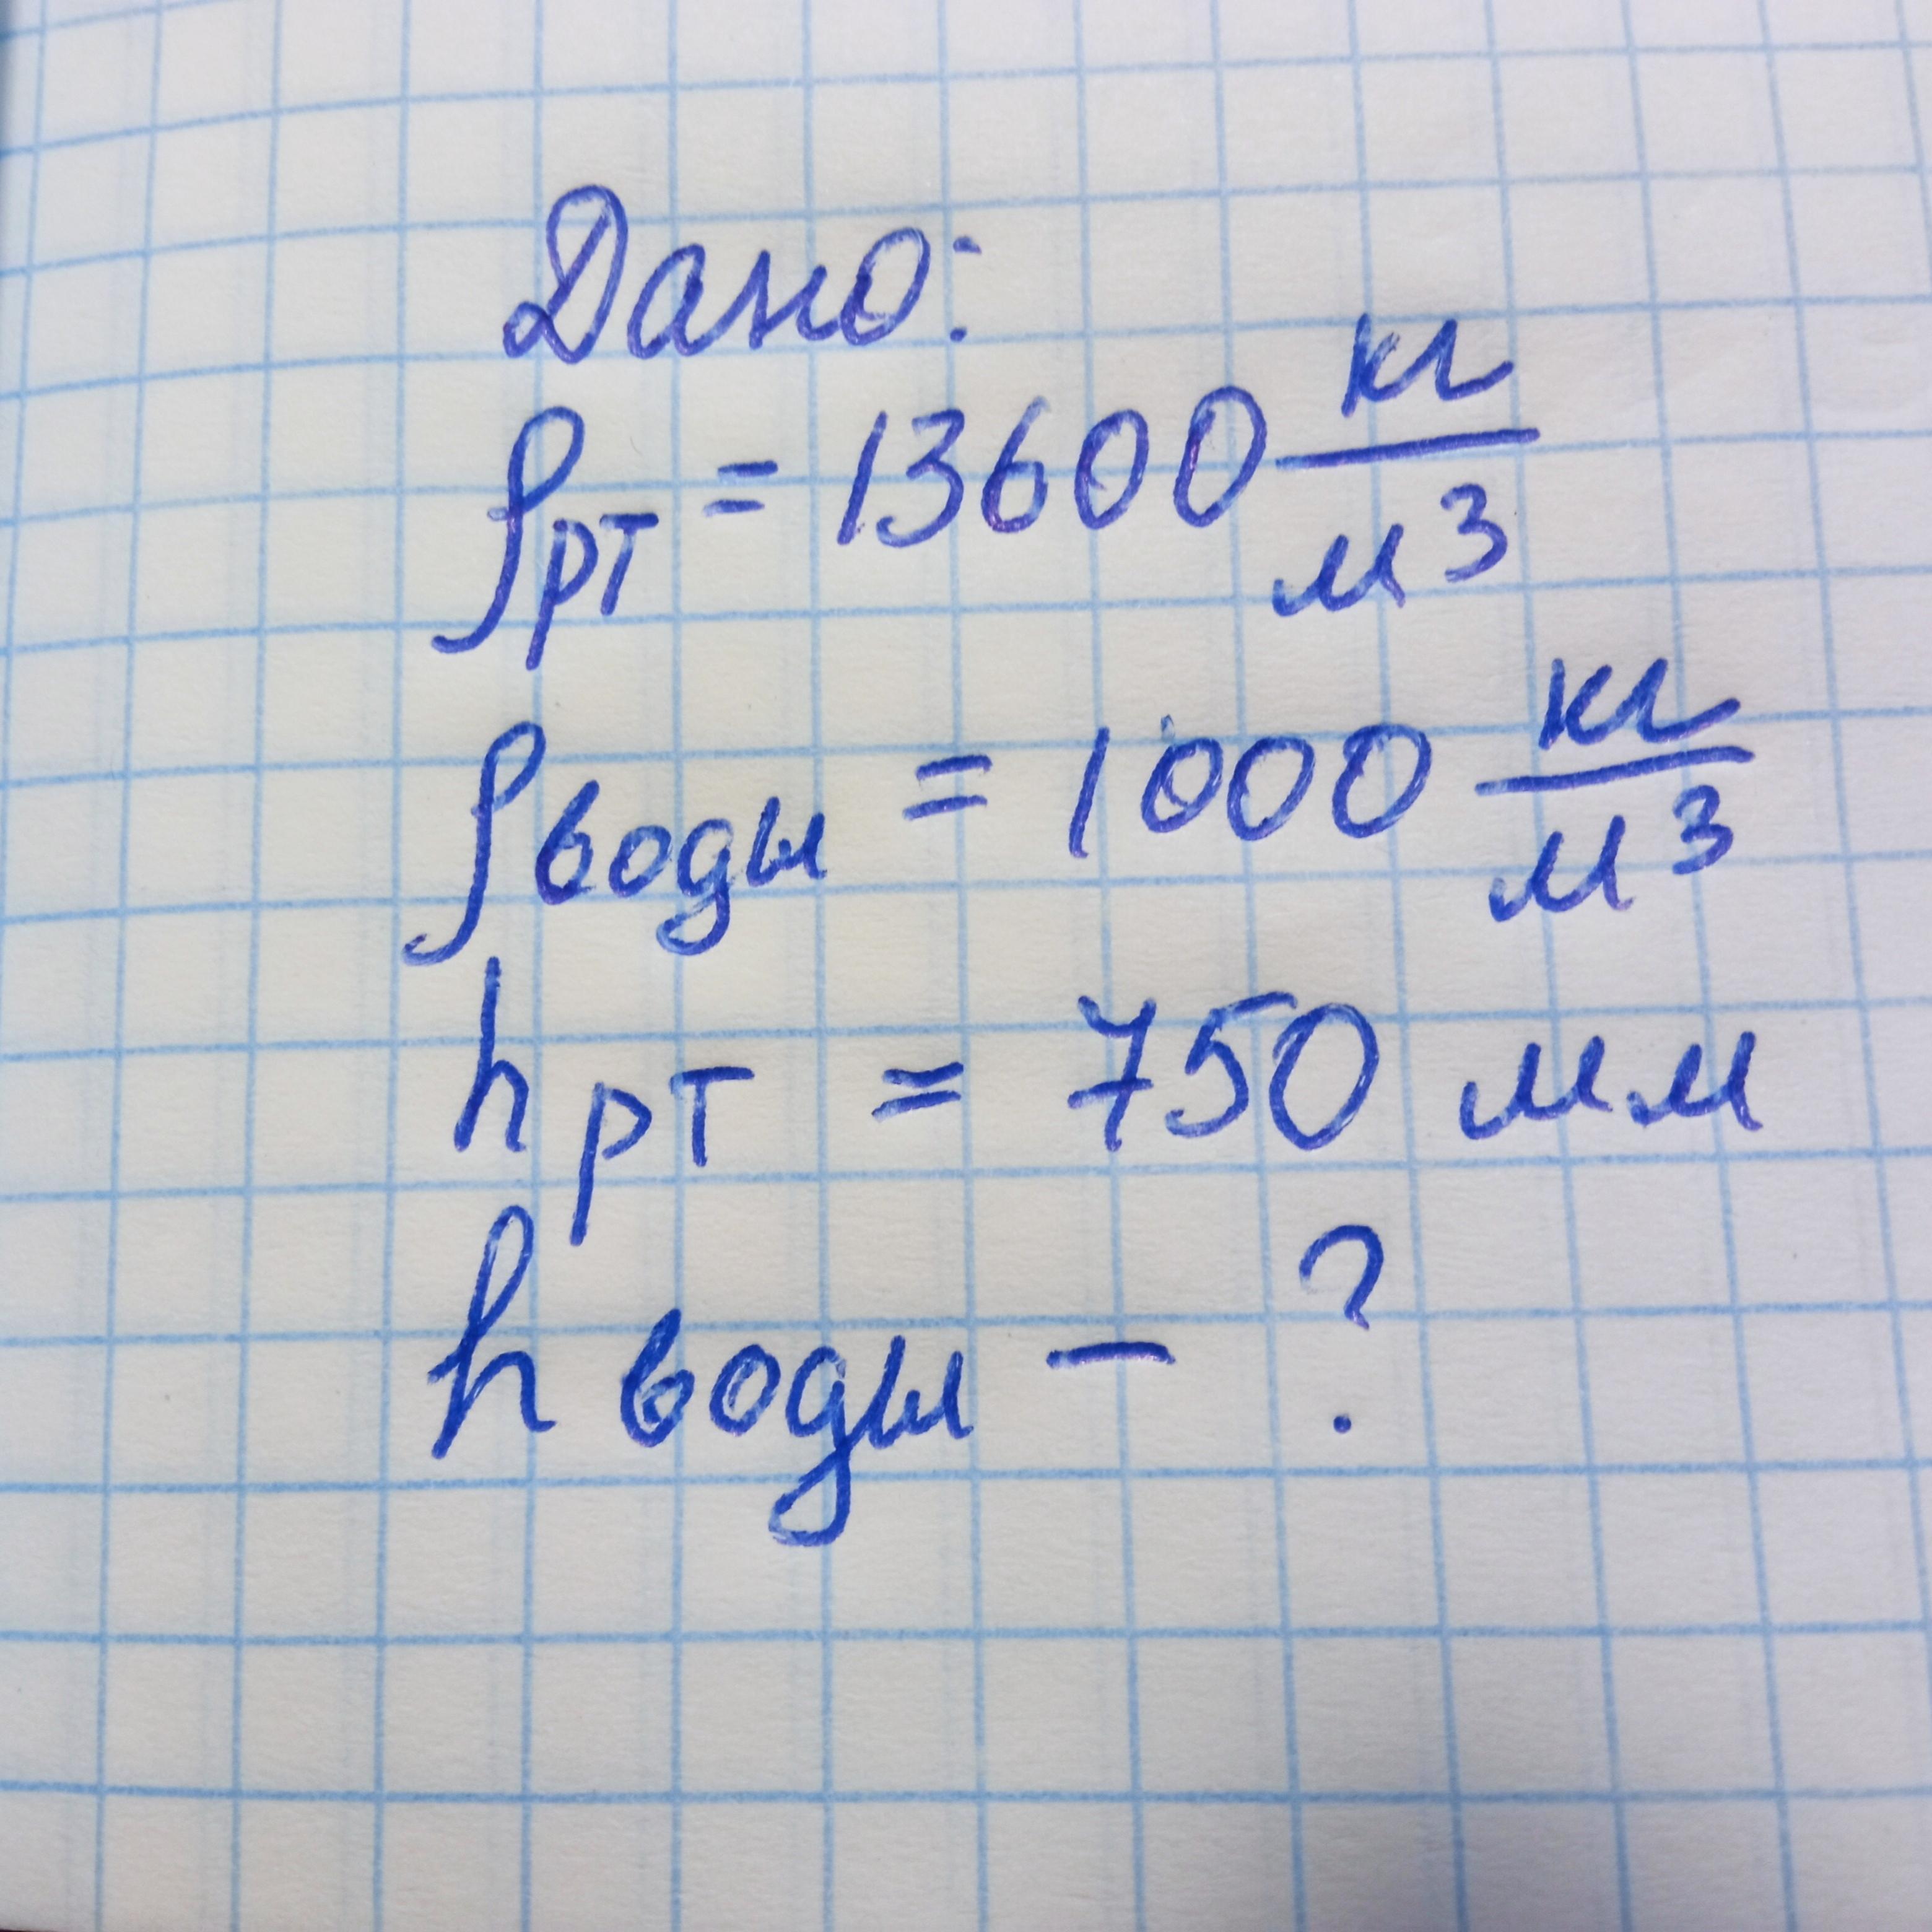 Дано:
ρрт = 13600 кг/м³
ρводы = 1000 кг/м³
hрт = 750 мм
hводы – ?